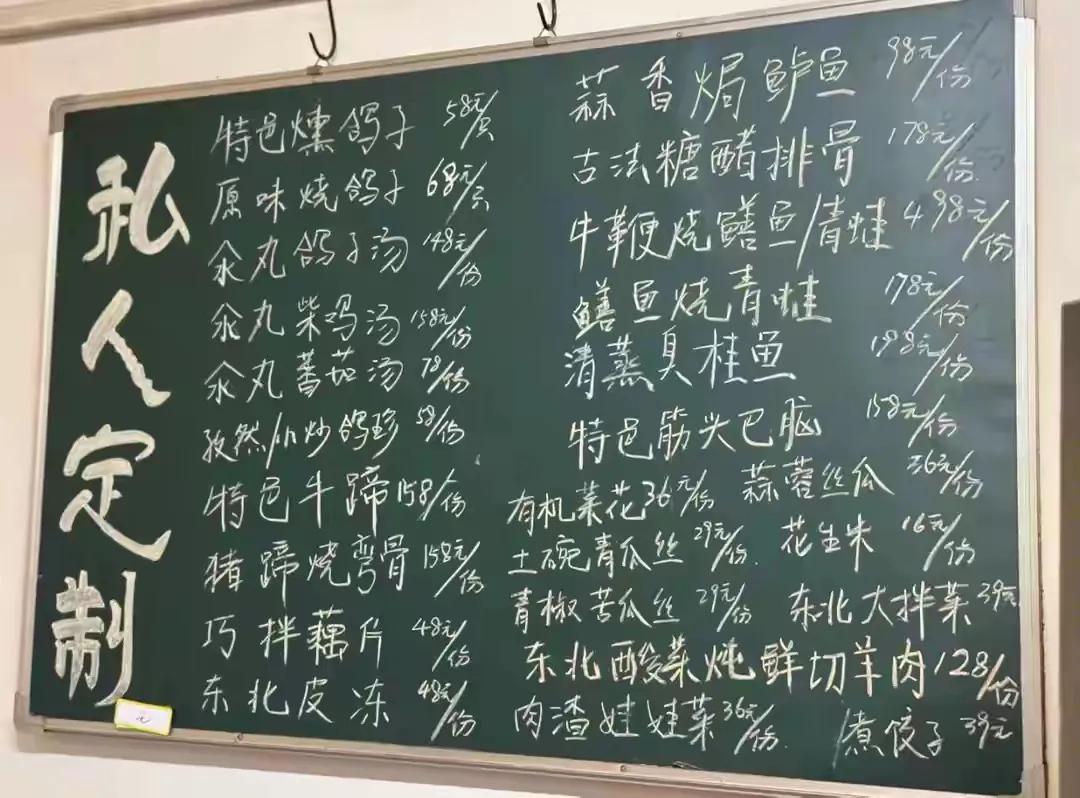 私人定制
特色燻鸽子 58元/只
原味烧鸽子 68元/只
氽丸鸽子汤 148元/份
氽丸柴鸡汤 158元/份
氽丸蕃茄汤 78/份
孜然/小炒鸽珍 58/份
特色牛蹄 158/份
猪蹄烧弯骨 158元/份
巧拌藕片 48元/份
东北皮冻 48元/份
蒜香焗鲈鱼 98元/份
古法糖醋排骨 178元/份
牛鞭烧鳝鱼/青蛙 498元/份
鳝鱼烧青蛙 178元/份
清蒸臭桂鱼 198元/份
特色筋头巴脑 158元/份
有机菜花 36元/份 蒜蓉丝瓜 36元/份
土碗青瓜丝 29元/份 花生米 16元/份
青椒苦瓜丝 29元/份 东北大拌菜 39元
东北酸菜炖鲜切羊肉 128/份
肉渣娃娃菜 36元/份 煮饺子 39元